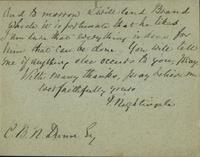 And to morrow I will send Brand
Whisky it is fortunate that he likes
I am sure that everything is done for
him that can be done. You will tell
me if anything else occurs to you, pray.
With many thanks, pray believe me
ever faithfully yours
F Nightingale
C.B.N. Dunn Esq